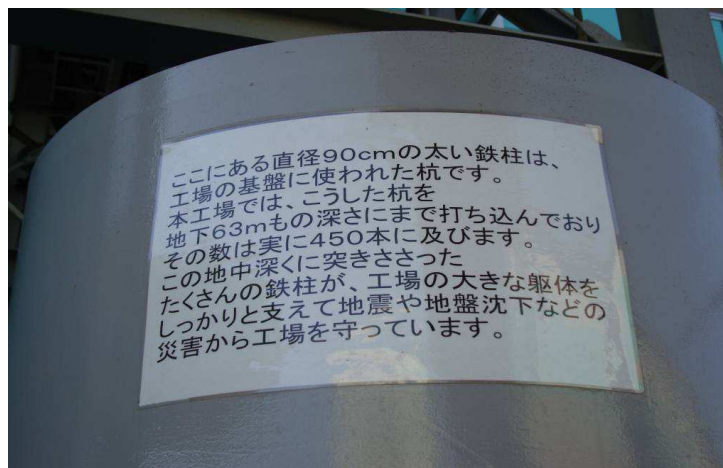 ここにある直径90cmの太い鉄柱は、
工場の基盤に使われた杭です。
本工場では、こうした杭を
地下63mもの深さにまで打ち込んでおり
その数は実に450本に及びます。
この地中深くに突きささった
たくさんの鉄柱が、工場の大きな躯体を
しっかりと支えて地震や地盤沈下などの
災害から工場を守っています。